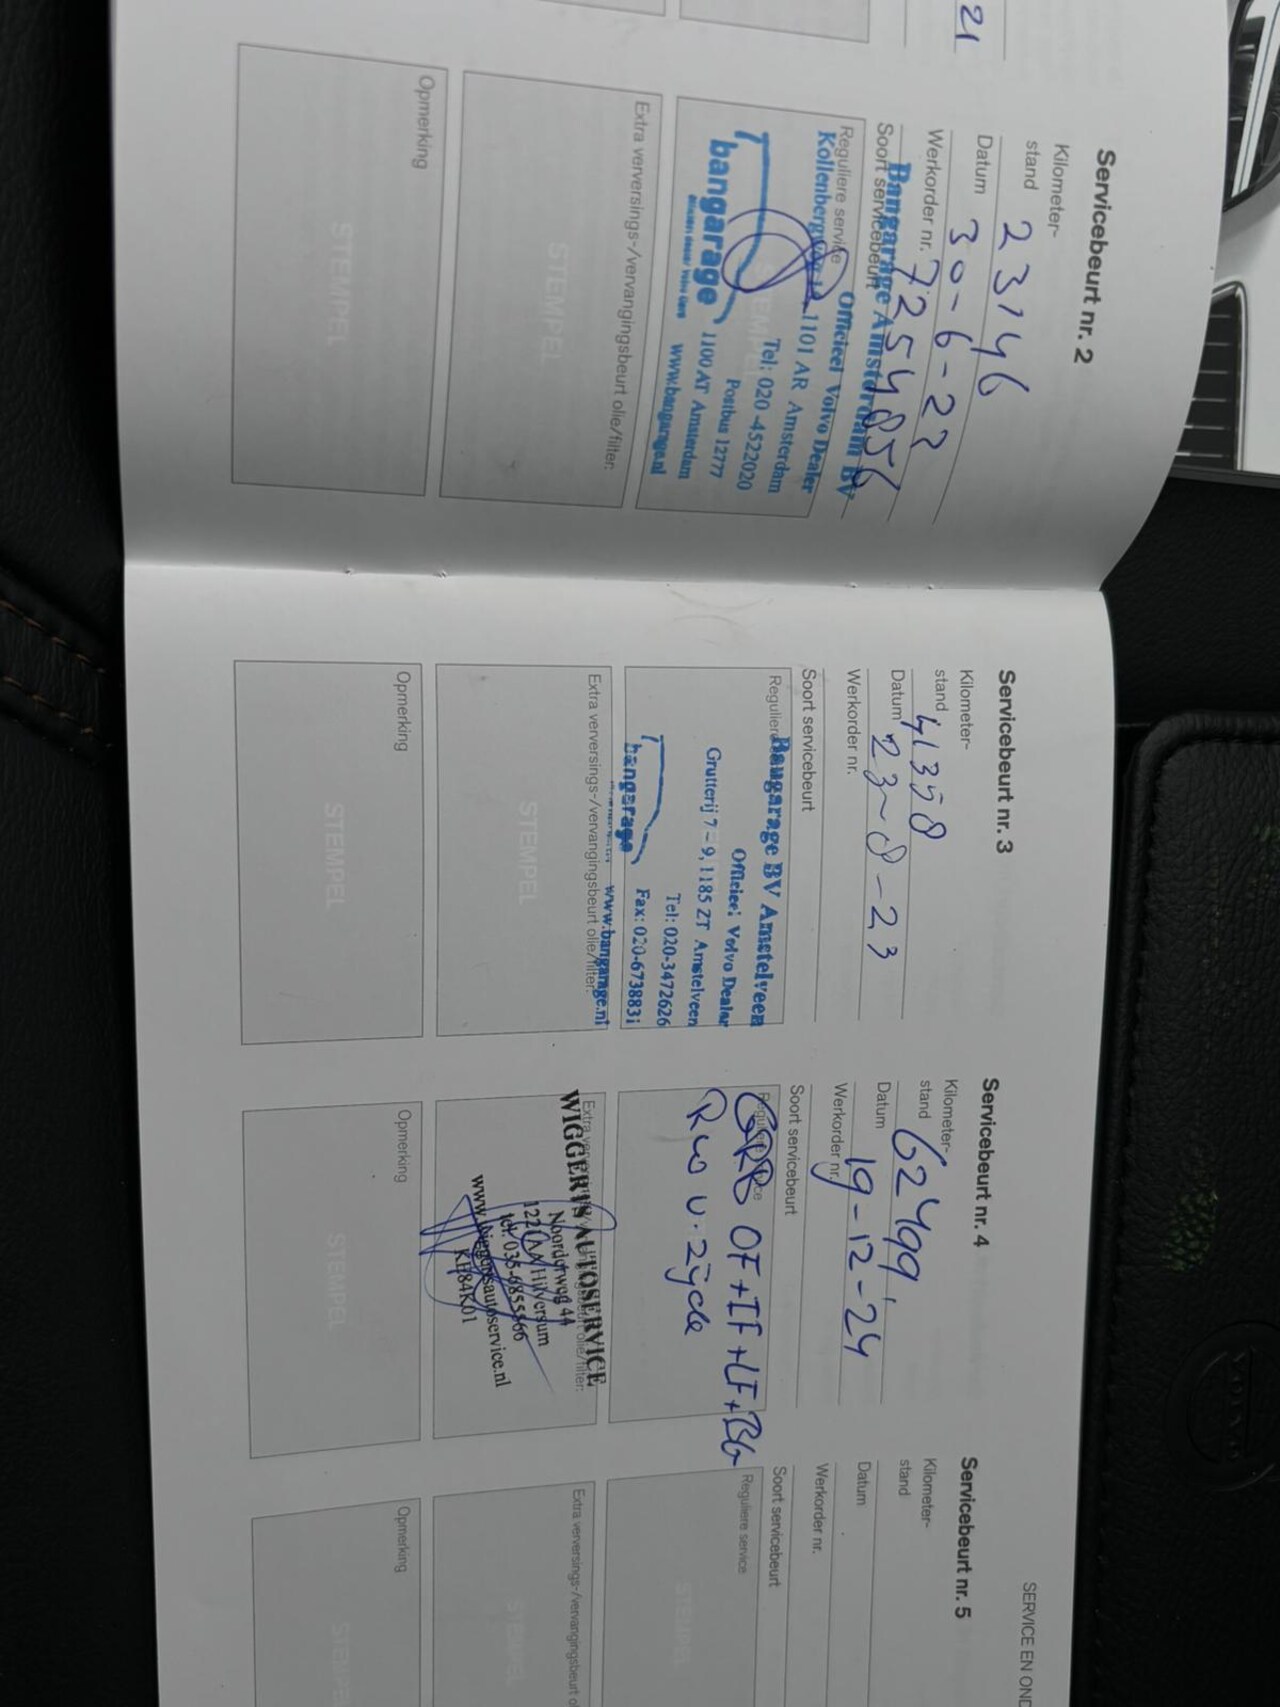 21
Servicebeurt nr. 2
Kilometer-
stand 23146
Datum 30-6-22
Werkorder nr. 7254856
Soort servicebeurt
Bangarage Amsterdam BV
Reguliere service
Officieel Volvo Dealer
1101 AR Amsterdam
Tel: 020-4522020
Postbus 12777
1100 AT Amsterdam
www.bangarage.nl
bangarage
Extra verversings-/vervangingsbeurt olie/filter:
STEMPEL
Opmerking
STEMPEL
Servicebeurt nr. 3
Kilometer-
stand 41358
Datum 23-8-23
Werkorder nr.
Soort servicebeurt
Reguliere
Bangarage BV Amstelveen
Officieel Volvo Dealer
Grutterij 7 - 9, 1185 ZT Amstelveen
Tel: 020-3472626
Fax: 020-6738831
bangarage
www.bangarage.nl
Extra verversings-/vervangingsbeurt olie/filter:
STEMPEL
Opmerking
STEMPEL
Servicebeurt nr. 4
Kilometer-
stand 62499
Datum 19-12-24
Werkorder nr.
Soort servicebeurt
GRB OF+IF+LF+BG
Extra verversings-/vervangingsbeurt olie/filter:
WIGGERTS AUTOSERVICE
Noorderweg 44
Hilversum
tel. 035-6855566
www.wiggertsautoservice.nl
KH84K01
Opmerking
STEMPEL
Servicebeurt nr. 5
Kilometer-
stand
Datum
Werkorder nr.
Soort servicebeurt
Reguliere service
STEMPEL
Extra verversings-/vervangingsbeurt
STEMPEL
Opmerking
STEMPEL
SERVICE EN OND
VOLVO